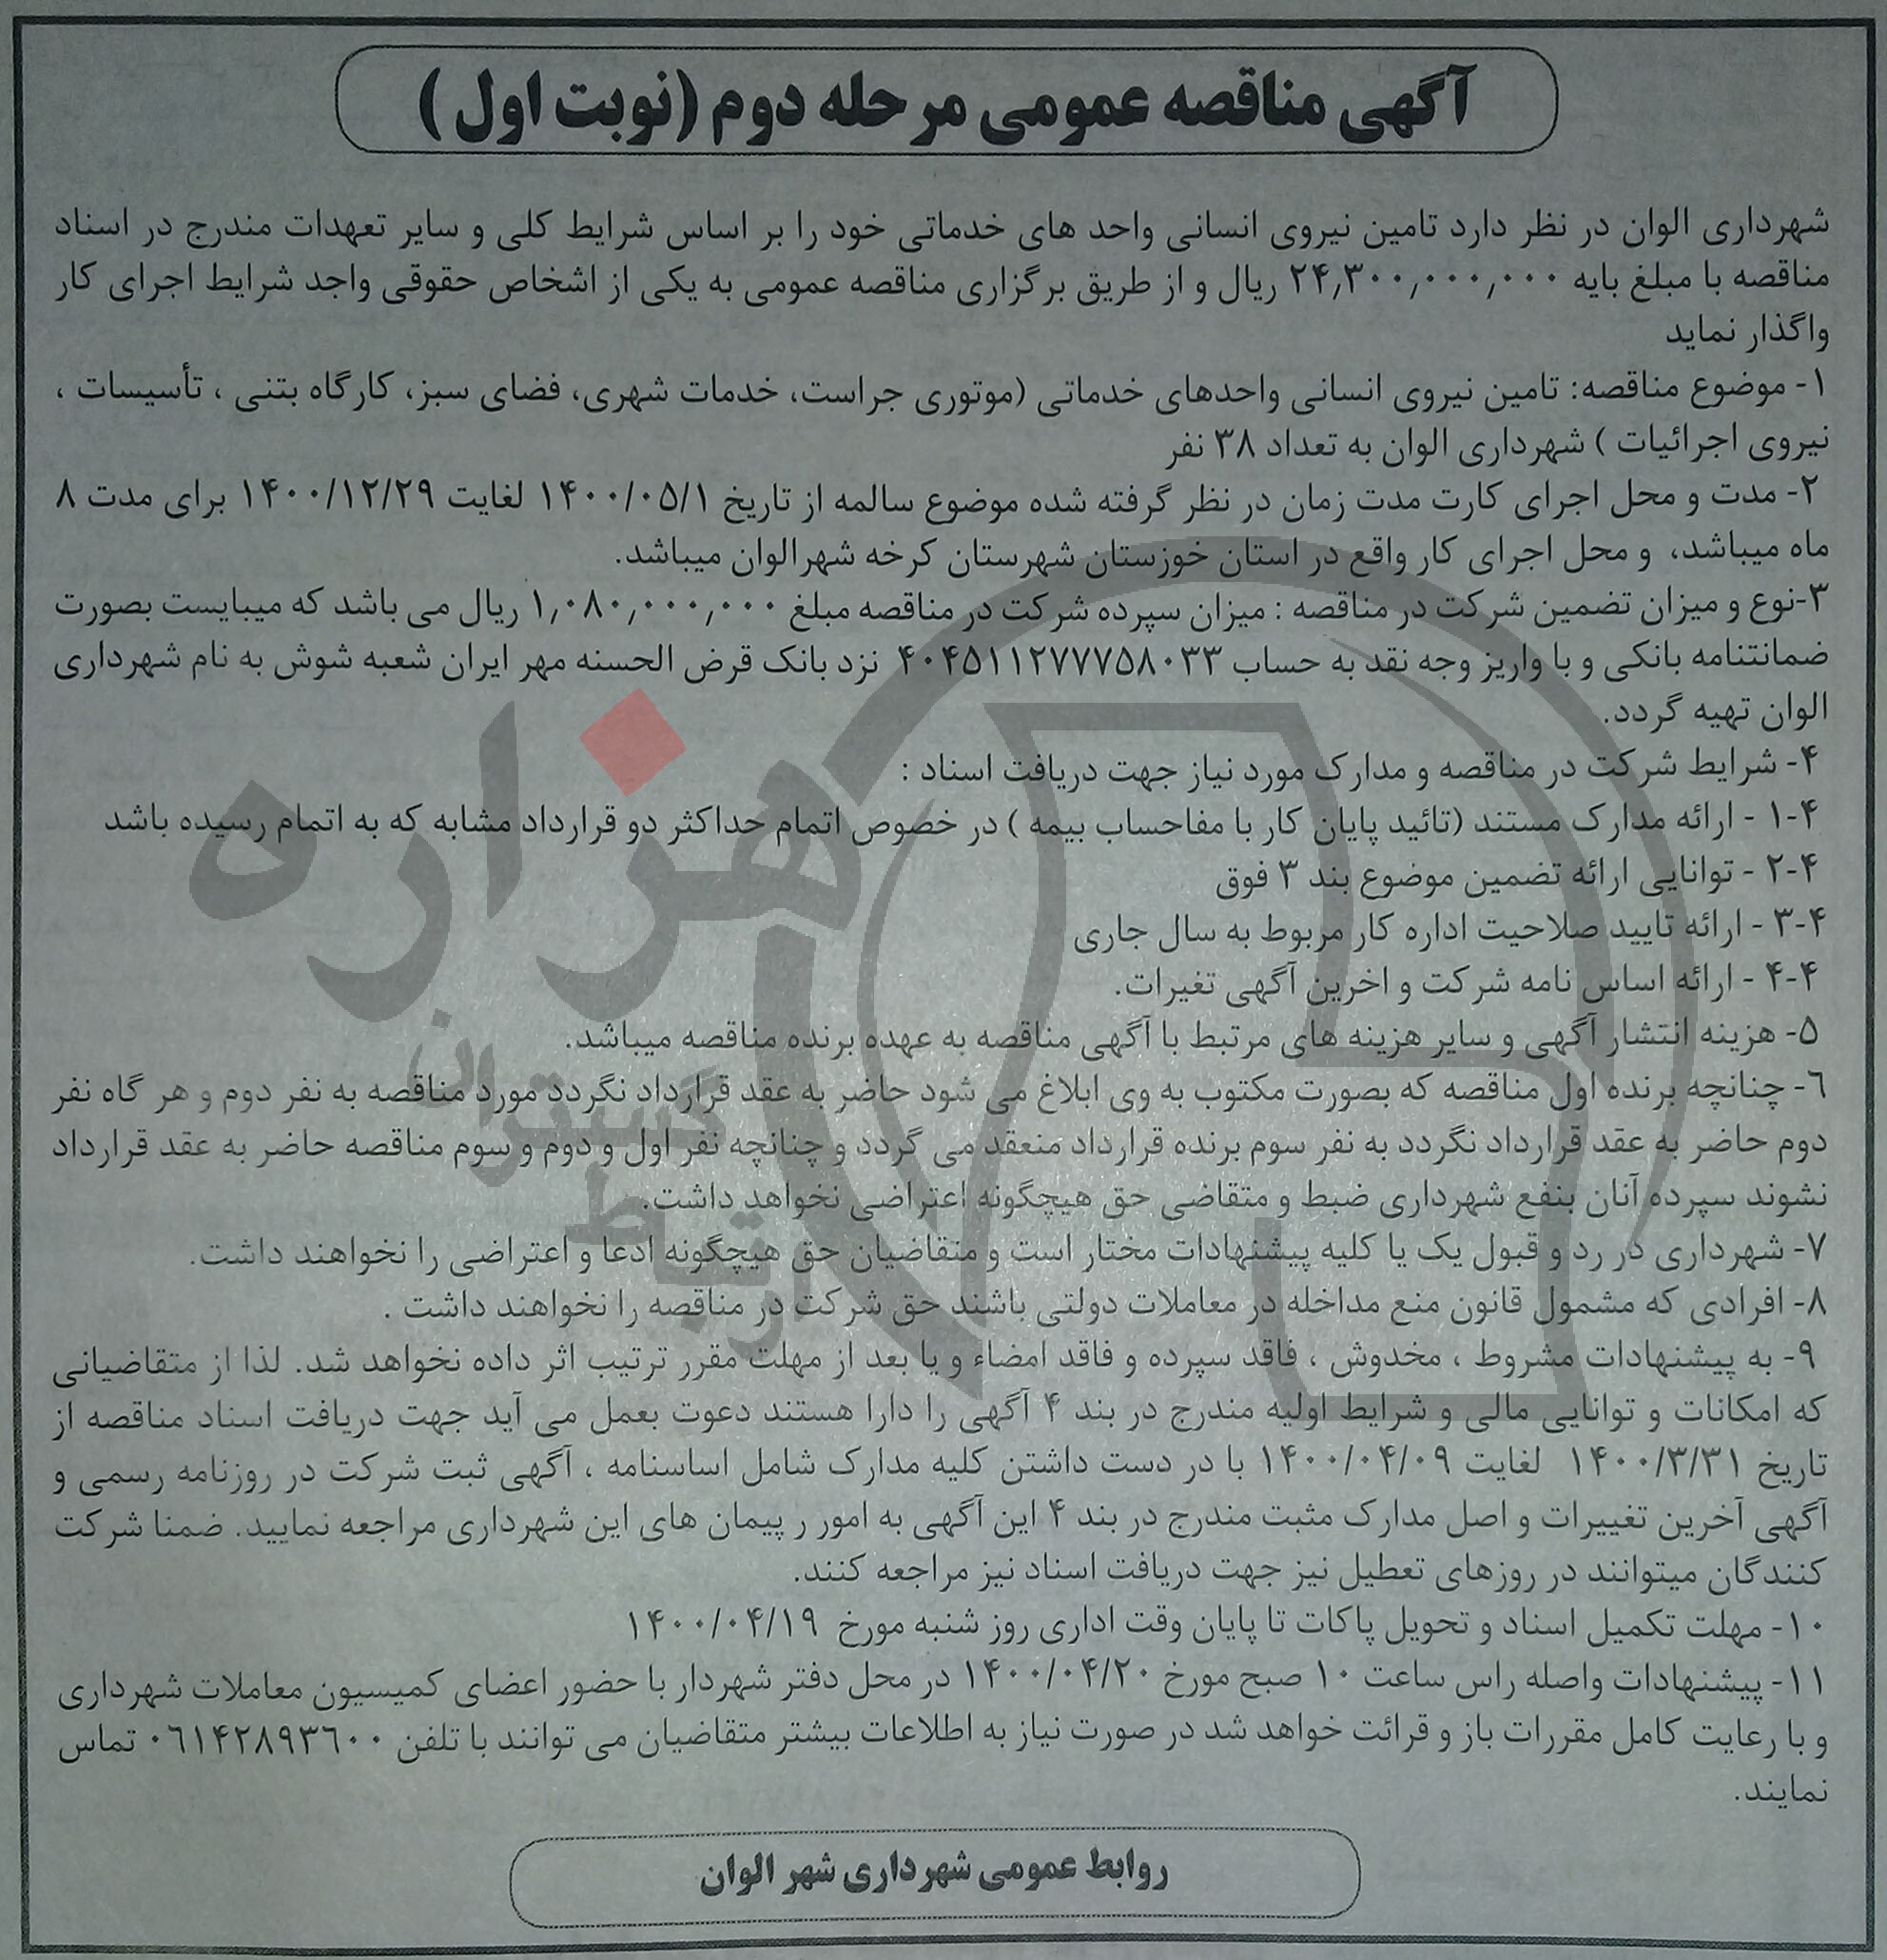 آگهی مناقصه عمومی مرحله دوم (نوبت اول )
شهرداری الوان در نظر دارد تامین نیروی انسانی واحد های خدماتی خود را بر اساس شرایط کلی و سایر تعهدات مندرج در اسناد
مناقصه با مبلغ بایه ۲۴,۳۰۰,۰۰۰,۰۰۰ ریال و از طریق برگزاری مناقصه عمومی به یکی از اشخاص حقوقی واجد شرایط اجرای کار
واگذار نماید
۱- موضوع مناقصه: تامین نیروی انسانی واحدهای خدماتی (موتوری جراست، خدمات شهری، فضای سبز، کارگاه بتنی ، تأسیسات ،
نیروی اجرائیات ) شهرداری الوان به تعداد ۳۸ نفر
۲- مدت و محل اجرای کارت مدت زمان در نظر گرفته شده موضوع سالمه از تاریخ ۱۴۰۰/۰۵/۱ لغایت ۱۴۰۰/۱۲/۲۹ برای مدت ۸
ماه میباشد، و محل اجرای کار واقع در استان خوزستان شهرستان کرخه شهرالوان میباشد.
۳-نوع و میزان تضمین شرکت در مناقصه : میزان سپرده شرکت در مناقصه مبلغ ۱,۰۸۰,۰۰۰,۰۰۰ ریال می باشد که میبایست بصورت
ضمانتنامه بانکی و با واریز وجه نقد به حساب ۴۰۴۵۱۱۲۷۷۷۵۸۰۳۳ نزد بانک قرض الحسنه مهر ایران شعبه شوش به نام شهرداری
الوان تهیه گردد.
۴- شرایط شرکت در مناقصه و مدارک مورد نیاز جهت دریافت اسناد :
۱-۴ - ارائه مدارک مستند (تائید پایان کار با مفاحساب بیمه ) در خصوص اتمام حداکثر دو قرارداد مشابه که به اتمام رسیده باشد
۲-۴ - توانایی ارائه تضمین موضوع بند ۳ فوق
۳-۴ - ارائه تایید صلاحیت اداره کار مربوط به سال جاری
۴-۴ - ارائه اساس نامه شرکت و اخرین آگهی تغیرات.
۵- هزینه انتشار آگهی و سایر هزینه های مرتبط با آگهی مناقصه به عهده برنده مناقصه میباشد.
۶- چنانچه برنده اول مناقصه که بصورت مکتوب به وی ابلاغ می شود حاضر به عقد قرارداد نگردد مورد مناقصه به نفر دوم و هر گاه نفر
دوم حاضر به عقد قرارداد نگردد به نفر سوم برنده قرارداد منعقد می گردد و چنانچه نفر اول و دوم و سوم مناقصه حاضر به عقد قرارداد
نشوند سپرده آنان بنفع شهرداری ضبط و متقاضی حق هیچگونه اعتراضی نخواهد داشت.
۷- شهرداری در رد و قبول یک یا کلیه پیشنهادات مختار است و متقاضیان حق هیچگونه ادعا و اعتراضی را نخواهند داشت.
۸- افرادی که مشمول قانون منع مداخله در معاملات دولتی باشند حق شرکت در مناقصه را نخواهند داشت .
۹- به پیشنهادات مشروط ، مخدوش ، فاقد سپرده و فاقد امضاء و یا بعد از مهلت مقرر ترتیب اثر داده نخواهد شد. لذا از متقاضیانی
که امکانات و توانایی مالی و شرایط اولیه مندرج در بند ۴ آگهی را دارا هستند دعوت بعمل می آید جهت دریافت اسناد مناقصه از
تاریخ ۱۴۰۰/۳/۳۱ لغایت ۱۴۰۰/۰۴/۰۹ با در دست داشتن کلیه مدارک شامل اساسنامه ، آگهی ثبت شرکت در روزنامه رسمی و
آگهی آخرین تغییرات و اصل مدارک مثبت مندرج در بند ۴ این آگهی به امور ر پیمان های این شهرداری مراجعه نمایید. ضمنا شرکت
کنندگان میتوانند در روزهای تعطیل نیز جهت دریافت اسناد نیز مراجعه کنند.
۱۰- مهلت تکمیل اسناد و تحویل پاکات تا پایان وقت اداری روز شنبه مورخ ۱۴۰۰/۰۴/۱۹
۱۱- پیشنهادات واصله راس ساعت ۱۰ صبح مورخ ۱۴۰۰/۰۴/۲۰ در محل دفتر شهردار با حضور اعضای کمیسیون معاملات شهرداری
و با رعایت کامل مقررات باز و قرائت خواهد شد در صورت نیاز به اطلاعات بیشتر متقاضیان می توانند با تلفن ۰۶۱۴۲۸۹۳۶۰۰ تماس
نمایند.
روابط عمومی شهرداری شهر الوان
هزاره
ارتباط
گستران